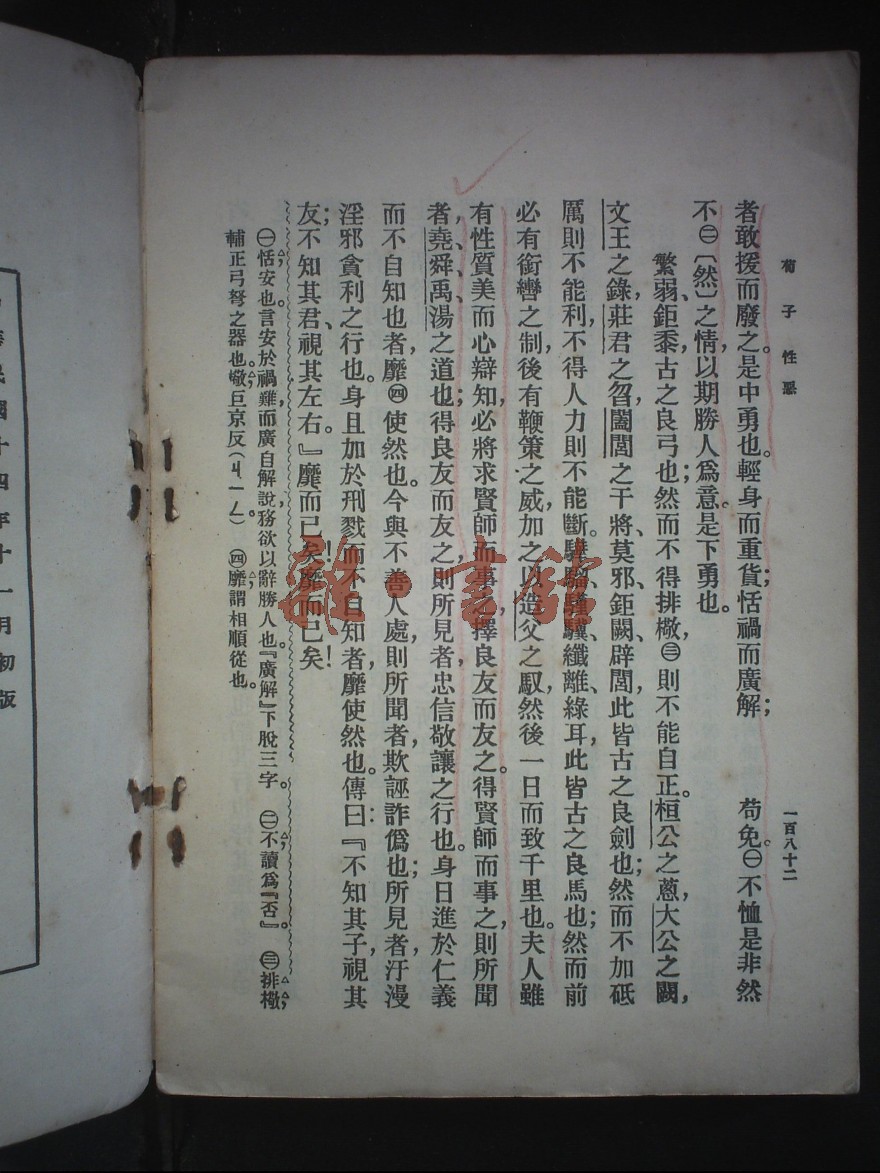 荀子　性惡　一百八十二
者敢援而廢之。是中勇也。輕身而重貨；恬禍而廣解；　苟免。㊀不恤是非然
不㊁〔然〕之情，以期勝人爲意。是下勇也。
繁弱、鉅黍，古之良弓也；然而不得排㯳，㊂則不能自正。桓公之蔥，大公之闕，
文王之錄，莊君之曶，闔閭之干將、莫邪、鉅闕、辟閭，此皆古之良劍也；然而不加砥
厲則不能利，不得人力則不能斷。驊騮、騹驥、纖離、綠耳，此皆古之良馬也；然而前
必有銜轡之制，後有鞭策之威，加之以造父之馭，然後一日而致千里也。夫人雖
有性質美而心辯知，必將求賢師而事之，擇良友而友之。得賢師而事之，則所聞
者，堯、舜、禹、湯之道也；得良友而友之，則所見者忠信敬讓之行也。身日進於仁義
而不自知也者，靡㊃使然也。今與不善人處，則所聞者欺誣詐僞也；所見者，汙漫
淫邪貪利之行也。身且加於刑戮而不自知者，靡使然也。傳曰：『不知其子視其
友；不知其君，視其左右。』靡而已矣！靡而已矣！
㊀恬，安也。言安於禍難，而廣自解說，務欲以辭勝人也。『廣解』下脫三字。　㊁不，讀爲『否』。　㊂排㯳，
輔正弓弩之器也。㯳，巨京反（ㄐㄧㄥ）　㊃靡，謂相順從也。
民國十四年十一月初版
雅·書館